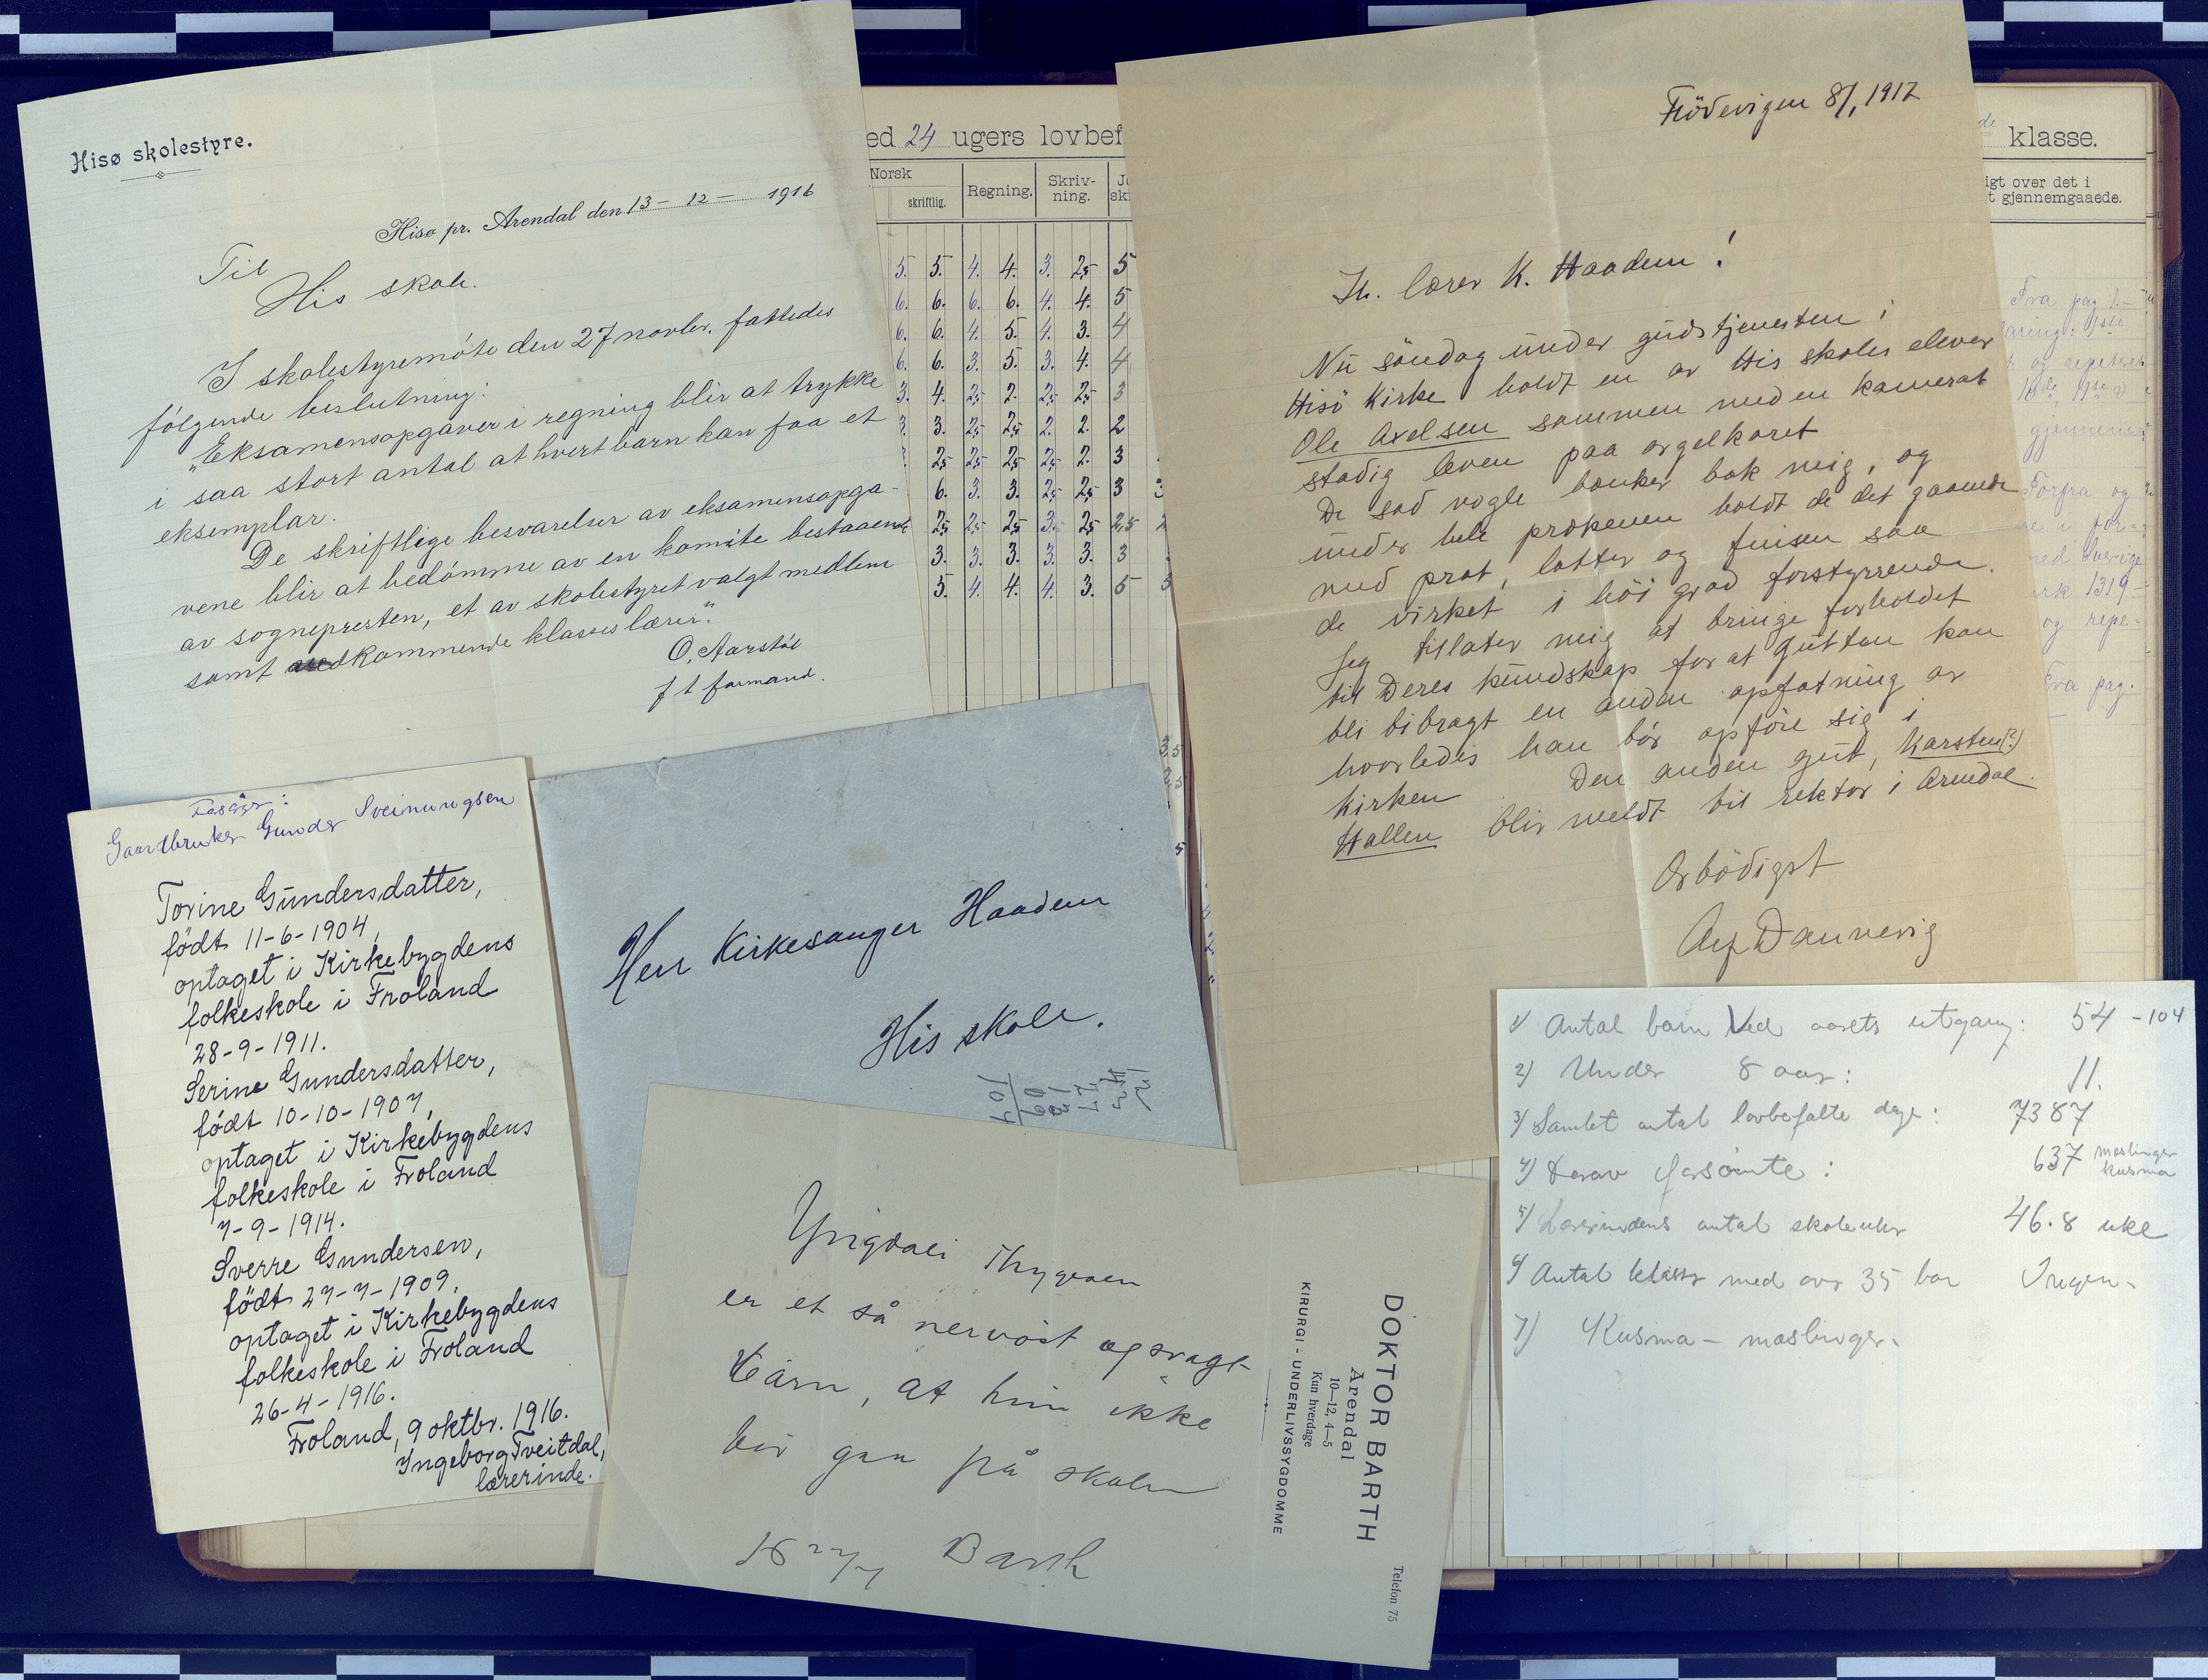 Hisø skolestyre.
Hisø pr. Arendal den 13 - 12 - 1916
Til
His skole.
I skolestyremöte den 27 novbr. fattedes
fölgende beslutning:
"Eksamensopgaver i regning blir at trykke
i saa stort antal at hvert barn kan faa et
eksemplar.
De skriftlige besvarelser av eksamensopga-
vene blir at bedömme av en komite bestaaende
av sognepresten, et av skolestyret valgt medlem
samt vedkommende klasses lærer".
O. Aarstöl
f t formand.
ed 24 ugers lovbef
Norsk
skriftlig.
Regning.
Skriv-
ning.
5. 5. 4. 4. 3. 2,5 5
6. 6. 6. 6. 4. 4. 5
6. 6. 4. 5. 4. 3. 4
6. 6. 3. 5. 3. 4. 4
3. 4. 2,5 2. 2,5 2,5 3
3. 3. 2,5 2,5 2. 2. 2
2,5 2,5 2,5 2,5 2. 3
6. 3. 3. 2,5 2,5 3
2,5 2,5 2,5 3. 2,5 2,5
3. 3. 3. 3. 3. 3
5. 4. 4. 4. 3. 5
klasse.
igt over det i
t gjennemgaaede.
Fra pag 1.-
gjennem
Forfra og
ned Sverige
1319-
og repe-
Fra pag.
Flödevigen 8/1 1917
Hr. lærer K. Haadem!
Nu söndag under gudstjenesten i
Hisö Kirke holdt en av His skoles elever
Ole Axelsen sammen med en kamerat
stadig leven paa orgelkoret
De sad nogle bænker bak mig, og
under hele prækenen holdt de det gaaende
med prat, latter og fnisen saa
de virket i höi grad forstyrrende.
Jeg tillater mig at bringe forholdet
til Deres kundskap for at gutten kan
bli bibragt en anden opfatning av
hvorledes han bör opföre sig i
kirken. Den anden gut, Karsten(?)
Hallen blir meldt til rektor i Arendal.
Ærbödigst
Alf Dannevig
Gaardbruker Gunder Sveinungsen
Torine Gundersdatter,
født 11-6-1904,
optaget i Kirkebygdens
folkeskole i Froland
28-9-1911.
Serine Gundersdatter,
født 10-10-1907,
optaget i Kirkebygdens
folkeskole i Froland
7-9-1914.
Sverre Gundersen,
født 27-7-1909,
optaget i Kirkebygdens
folkeskole i Froland
26-4-1916.
Froland, 9 oktbr. 1916.
Ingeborg Tveitdal,
lærerinde.
Herr Kirkesanger Haadem
His skole.
Thygesen
er et så nervöst og svagt
barn, at hun ikke
bör gaa på skolen
Barth
DOKTOR BARTH
Arendal
10—12, 4—5
Kun hverdage
KIRURGI - UNDERLIVSSYGDOMME
Telefon 75
1) Antal barn ved aarets utgang: 54 - 104
2) Under 8 aar: 11.
3) Samlet antal lovbefalte dage: 7387
4) Derav forsömte: 637 mæslinger
kusma
5) Lærerindens antal skoleuker 46.8 uke
6) Antal klasser med over 35 bar Ingen -
7) Kusma - mæslinger.